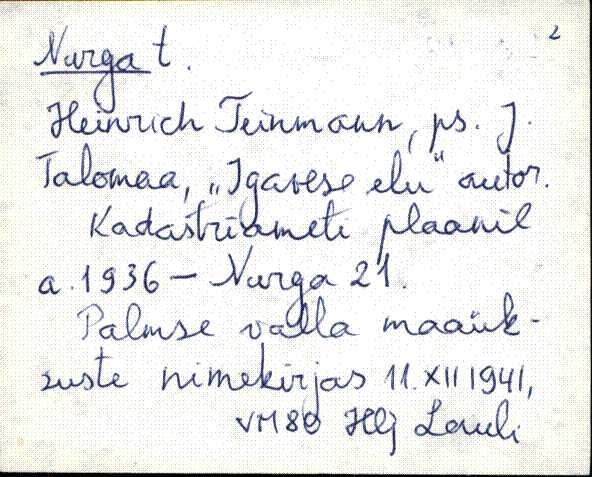 2
Nurga t.
Heinrich Teinmann, ps. J.
Talomaa, „Igavese elu“ autor.
Kadastriameti plaanil
a. 1936 — Nurga 21.
Palmse valla maaük-
suste nimekirjas 11. XII 1941,
VM80 Hlj Lauli